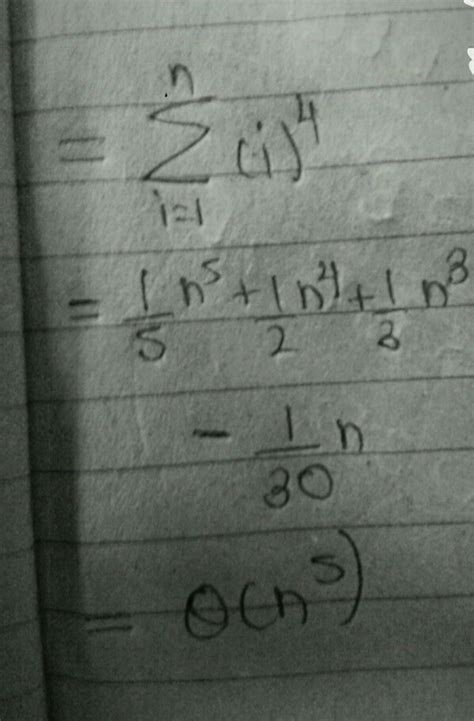 = ∑_{i=1}^{n} (i)^4
= 1/5 n^5 + 1/2 n^4 + 1/3 n^3
- 1/30 n
= θ(n^5)